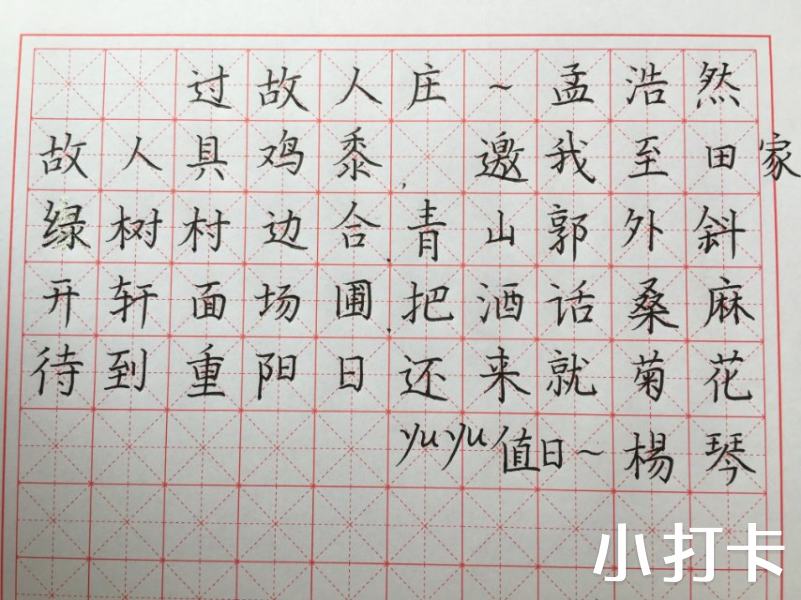 过故人庄~孟浩然
故人具鸡黍,邀我至田家
绿树村边合,青山郭外斜
开轩面场圃,把酒话桑麻
待到重阳日还来就菊花
yuyu值日~杨琴
小打卡